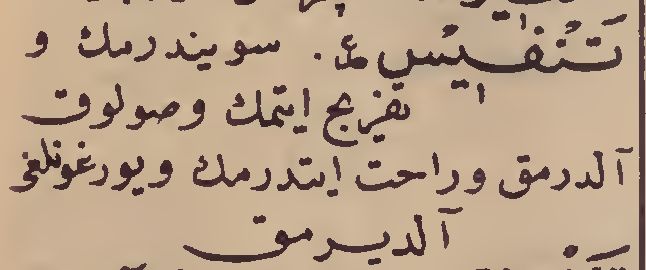 تَنْفِيسْ ع. سويندرمك و
تفريج ايتمك وصولوق
آلدرمق وراحت ايتدرمك ويورغونلغى
آلديرمق